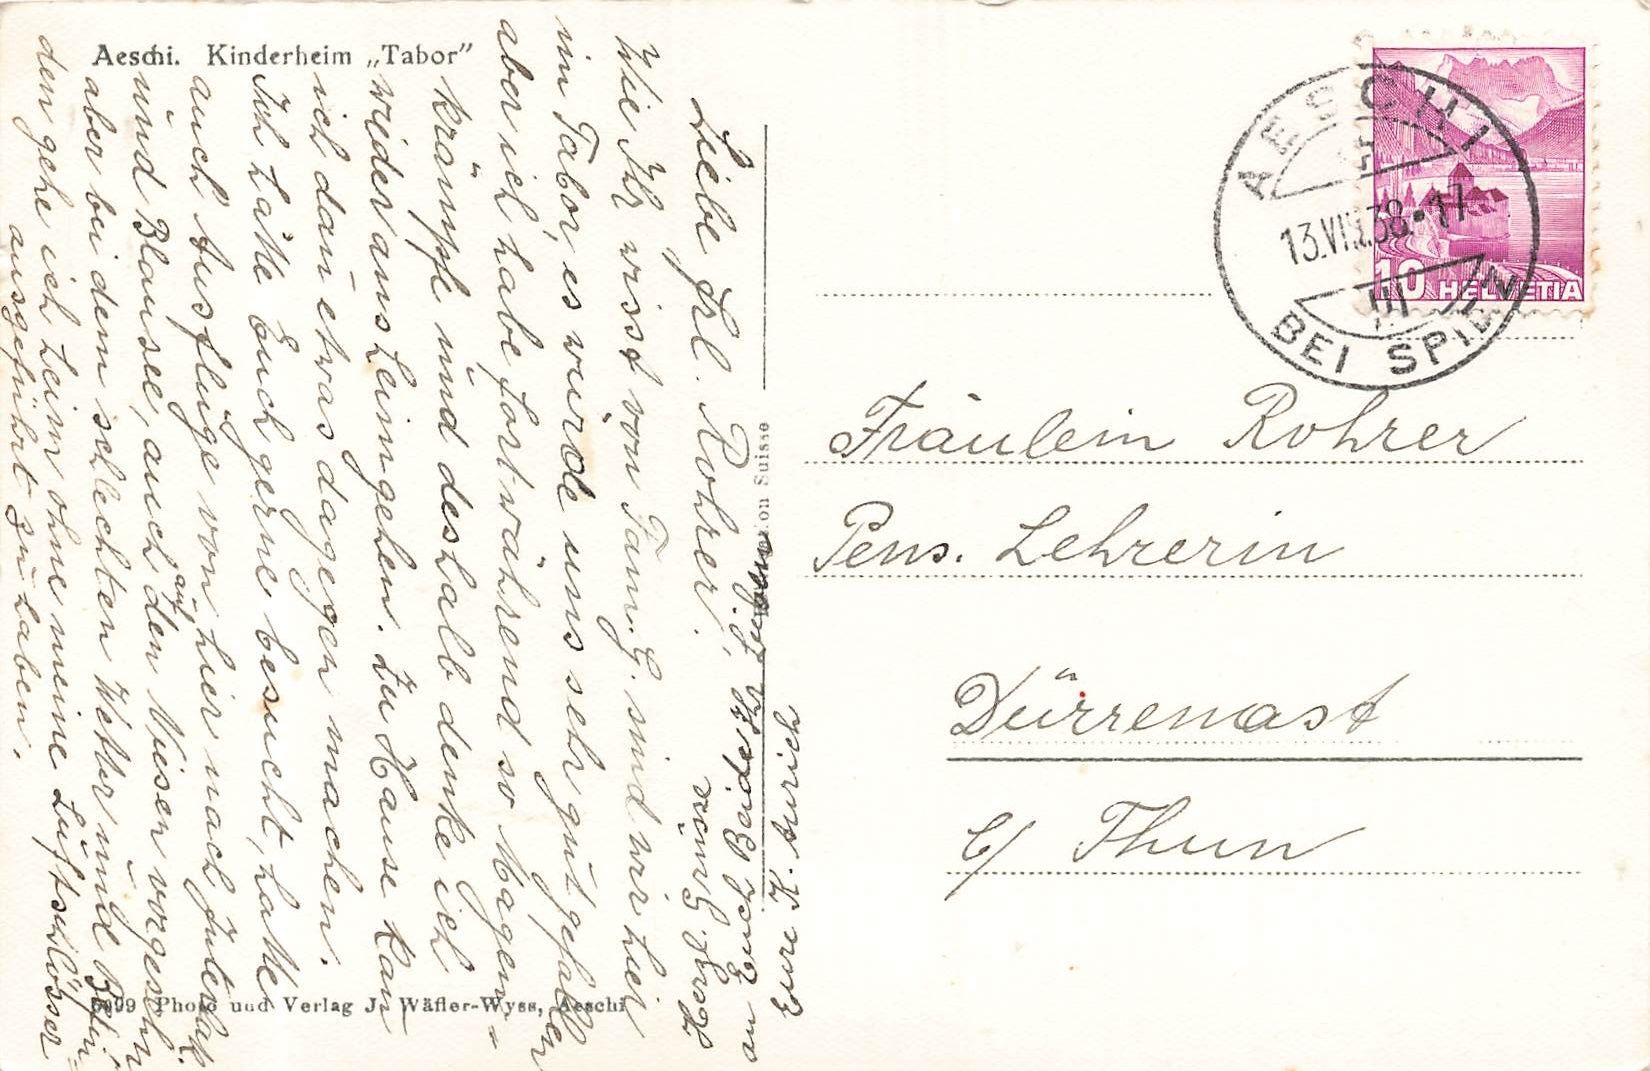 Aeschi. Kinderheim „Tabor"
Liebe Frl. Rohrer!
Wie Ihr wisst von Fam. G. sind wir hier
im Tabor, es würde uns sehr gut gefallen
aber ich habe fortwährend so Magen-
krämpfe und deshalb denke ich
wieder ans Heimgehen. Zu Hause kan
ich dan etwas dagegen machen.
Ich hätte Euch gerne besucht, hatte
auch Ausflüge von hier nach Interlak.
und Blausee, auch auf den Niesen vorgesehn
aber bei dem schlechten Wetter und Befin-
den gehe ich heim ohne meine Luftschlösser
ausgeführt zu haben.
Gruss
an Euch Beide
Eure K. Aurich
on Suisse
6099 Photo und Verlag J. Wäfler-Wyss, Aeschi
AESCHI
13.VIII.38.-17
III
BEI SPIEZ
10 HELVETIA
Fräulein Rohrer
Pens. Lehrerin
Dürrenast
b/ Thun